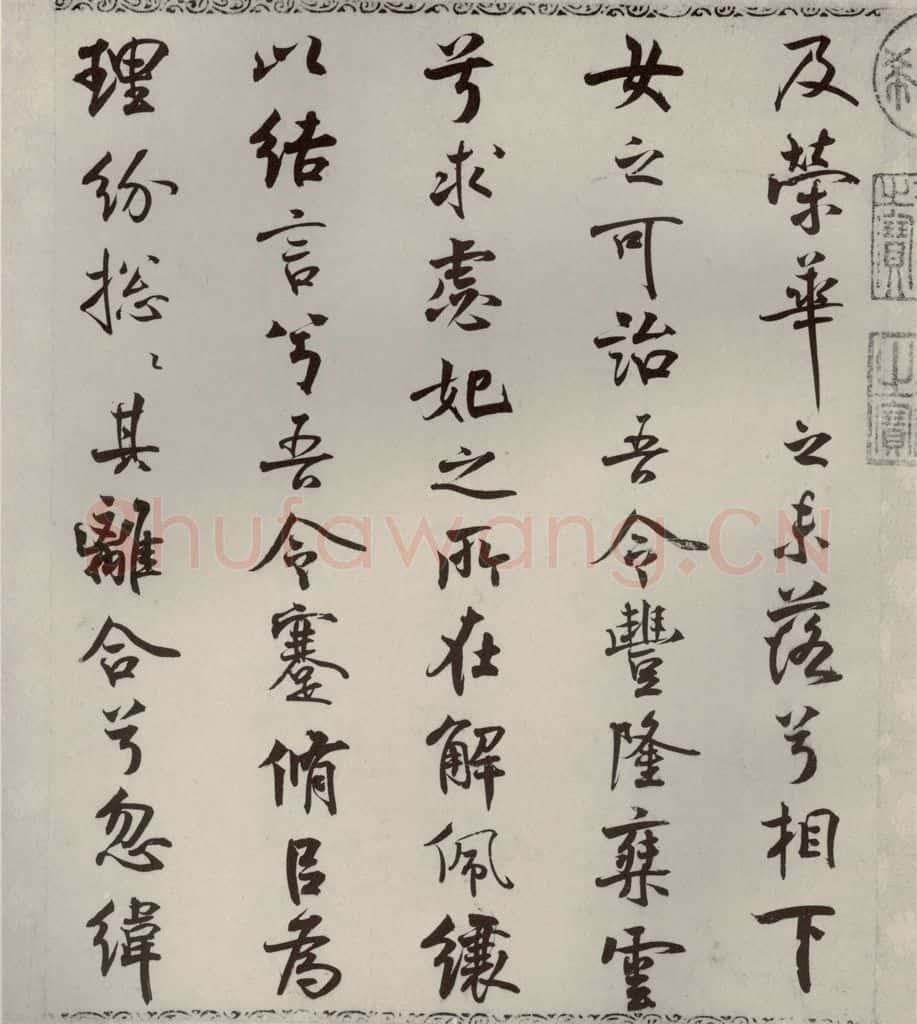 及榮華之未落兮相下
女之可詒吾令豐隆椉雲
兮求虙妃之所在解佩纕
以結言兮吾令蹇脩㠯為
理紛捴〻其離合兮忽緯
之寶
之寶
Shufawang.CN